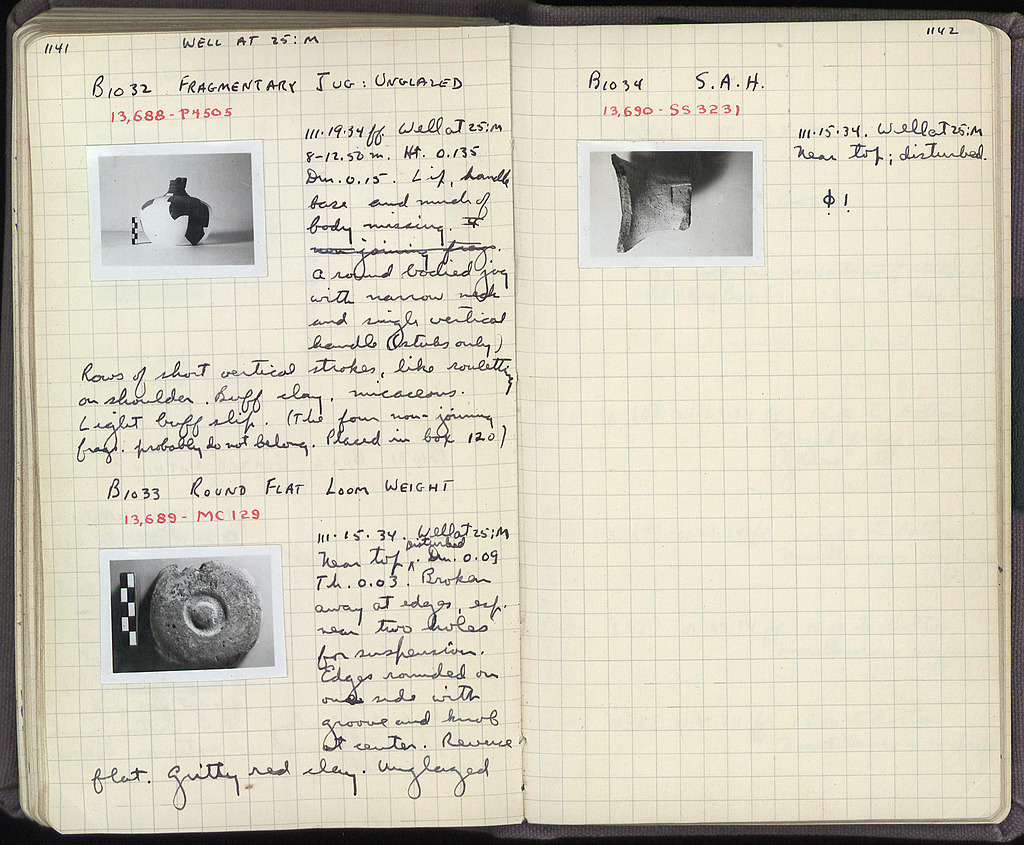 1141
WELL AT 25:M
B1032 FRAGMENTARY JUG: UNGLAZED
13,688 - P4505
III.19.34ff. Well at 25:M
8-12.50 m. Ht. 0.135
Dm. 0.15. Lip, handle
base and much of
body missing.
non-joining frags.
a round bodied jug
with narrow neck
and single vertical
handle (stubs only)
Rows of short vertical strokes, like rouletting
on shoulder. Buff clay, micaceous.
Light buff slip. (The four non-joining
frags. probably do not belong. Placed in box 120)
B1033 ROUND FLAT LOOM WEIGHT
13,689 - MC129
III.15.34. Well at 25:M
Near top, disturbed. Dm. 0.09
Th. 0.03. Broken
away at edges, esp.
near two holes
for suspension.
Edges rounded on
one side with
groove and knob
at center. Reverse
flat. Gritty red clay. Unglazed
1142
B1034 S.A.H.
13,690 - SS3231
III.15.34. Well at 25:M
Near top; disturbed.
ϕ!